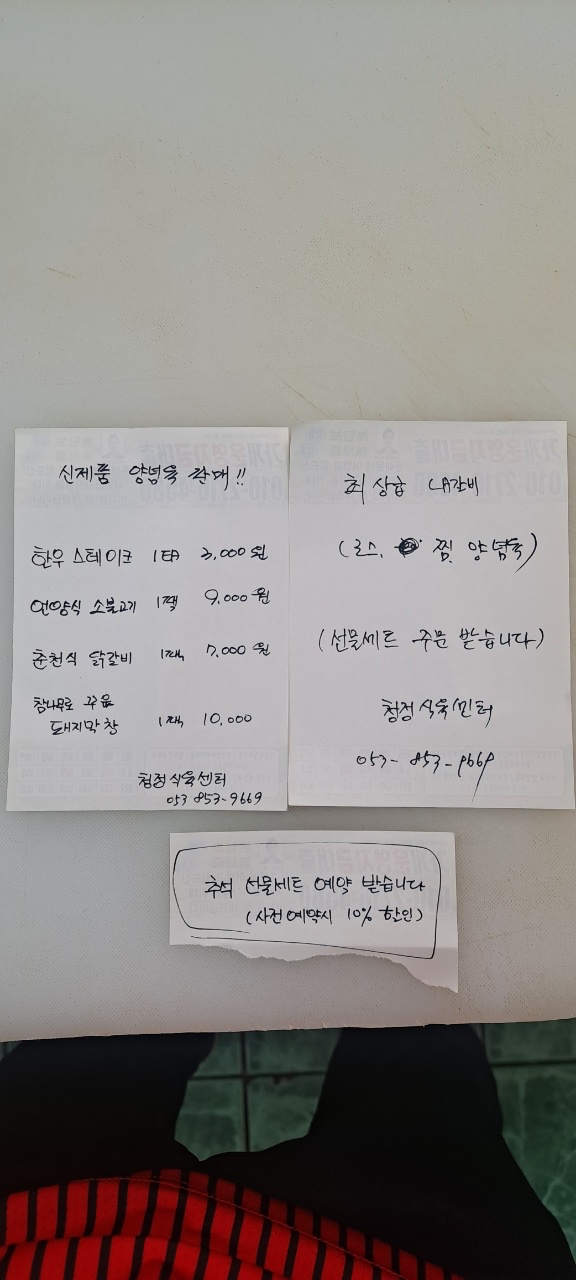 신제품 양념육 판매!!
한우 스테이크 1EA 3,000원
언양식 소불고기 1팩 9,000원
춘천식 닭갈비 1팩 7,000원
참나무로 구운
돼지막창 1팩 10,000
청정식육센터
053 853-9669
최상급 LA갈비
(로스, 찜, 양념육)
(선물세트 주문 받습니다)
청정식육센터
053-853-9669
추석 선물세트 예약 받습니다
(사전예약시 10% 할인)